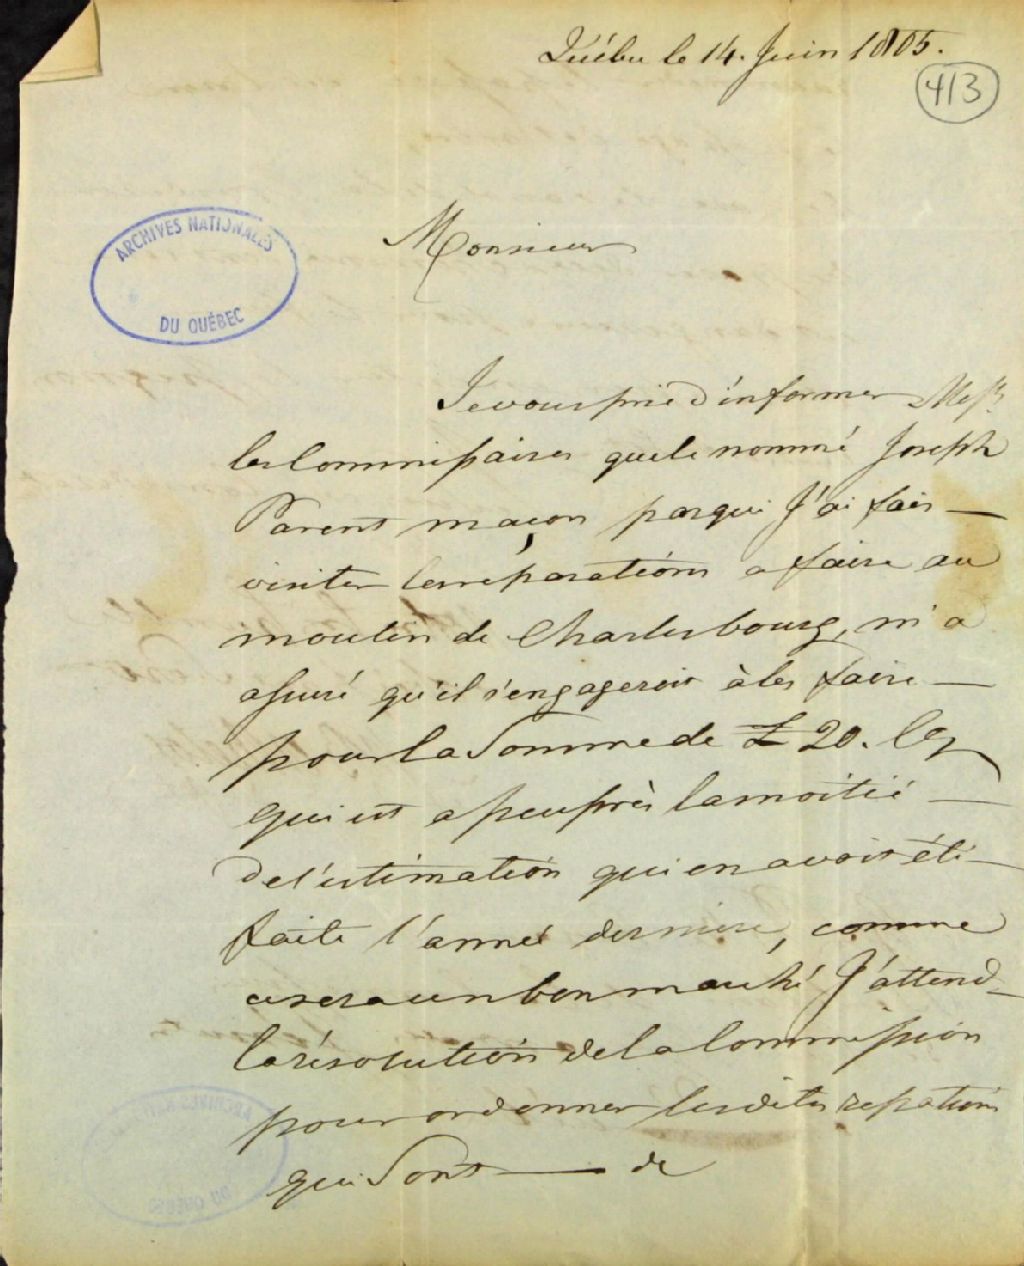 Québec le 14. Juin 1805.
413
ARCHIVES NATIONALES
DU QUÉBEC
Monsieur
Je vous prie d'informer Messrs
les Commissaires que le nommé Joseph
Parent maçon par qui J'ai fait
visiter les réparations a faire au
moulin de Charlesbourg, m'a
assuré qu'il s'engageroit à les faire
pour la Somme de £ 20. Cy
qui est a peu près la moitié
de l'estimation qui en avoit été
faite l'anneé derniere, comme
ce sera un bon marché J'attend
la résolution de la Commission
pour ordonner les dites reparations
qui Sont de
ARCHIVES NATIONALES
DU QUÉBEC